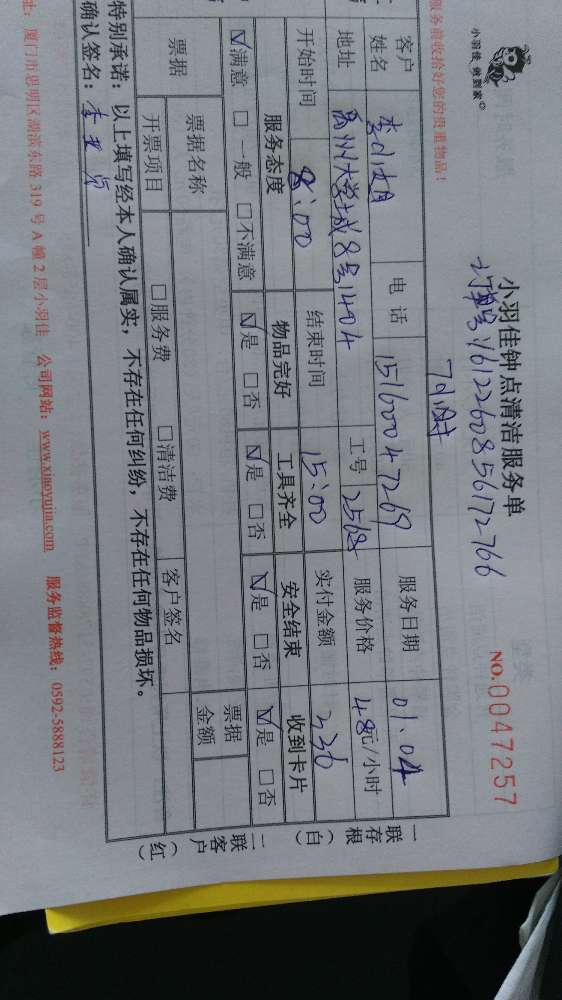 小羽佳 做到家
小羽佳钟点清洁服务单
NO.0047257
订单号1612260856172766
服务前收拾好您的贵重物品！
7小时
客户姓名 李小姐 电话 15160047269 服务日期 01.04
地址 大学城8号1404 工号 服务价格 48元/小时
开始时间 8:00 结束时间 15:00 实付金额 336
服务态度 物品完好 工具齐全 安全结束 收到卡片
☑满意 □一般 □不满意 ☑是 □否 ☑是 □否 ☑是 □否 ☑是 □否
票据 票据名称 票据金额
开票项目 □服务费 □清洁费 客户签名
特别承诺：以上填写经本人确认属实，不存在任何纠纷，不存在任何物品损坏。
确认签名：
一联存根（白） 二联客户（红）
址：厦门市思明区湖滨东路319号A幢2层小羽佳 公司网站：www.xiaoyujia.com 服务监督热线：0592-5888123